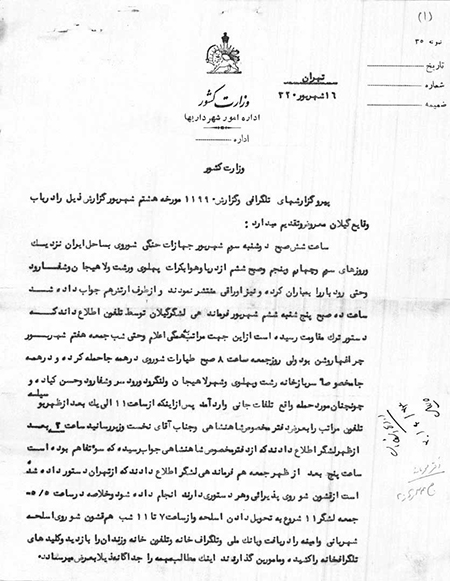 (۱)
نمونه ۳۵
تاریخ
شماره
ضمیمه
تهران
۱۶ شهریور ۳۲۰
وزارت کشور
اداره امور شهرداریها
اداره
وزارت کشور
پیرو گزارشهای تلگرافی وگزارش ۱۱۹۹۰ مورخه هشتم شهریور گزارش ذیل را در باب
وقایع گیلان معروض و تقدیم میدارد:
ساعت شش صبح دوشنبه سوم شهریور جهازات جنگی شوروی بساحل ایران نزدیک
و روزهای سوم و چهارم و پنجم و صبح ششم از دریا و هوا بکرات پهلوی و رشت ولاهیجان و شفارود
وحتی رودبار را بمباران کرده و نیز اوراقی منتشر نمودند و از طرف ارتش هم جواب داده شد
ساعت ده صبح پنجشنبه ششم شهریور فرماندهی لشگر گیلان توسط تلفون اطلاع دادند که
دستور ترک مقاومت رسیده است از این جهت مراتب همگی اعلام وحتی شب جمعه هفتم شهریور
چراغها روشن بود ولی روز جمعه ساعت ۸ صبح طیارات شوروی در همه جا حمله کرده و در همه
جا مخصوصا سربازخانه رشت و پهلوی و شهر لاهیجان و لنگرود و رودسر و شفارود وحسن کیاده و
چونچنان مورد حمله واقع تلفات جانی وارد آمد پس از اینکه از ساعت ۱۱ الی یک بعد از ظهر بوسیله
تلفون مراتب را بعرض دفتر مخصوص شاهنشاهی وجناب آقای نخست وزیر رسانید ساعت ۲ بعد
از ظهر لشگر اطلاع دادند که از دفتر مخصوص شاهنشاهی جواب رسید که سوء تفاهم بوده است
ساعت پنج بعد از ظهر جمعه هم فرماندهی لشگر اطلاع دادند که از تهران دستور داده شد
است از قشون شوروی پذیرائی وهر دستوری دارند انجام داده شود وخلاصه در ساعت ۵/۵
جمعه لشگر ۱۱ شروع به تحویل دادن اسلحه و از ساعت ۷ تا ۱۱ شب هم قشون شوروی اسلحه
شهربانی و امنیه را دریافت و بانک ملی و تلگرافخانه و تلفون خانه و زندان را بازدید وکلیدهای
تلگرافخانه را کشیده و مامورین گذاردند اینک مطالب مهمه را جداگانه ذیلا بعرض میرساند: